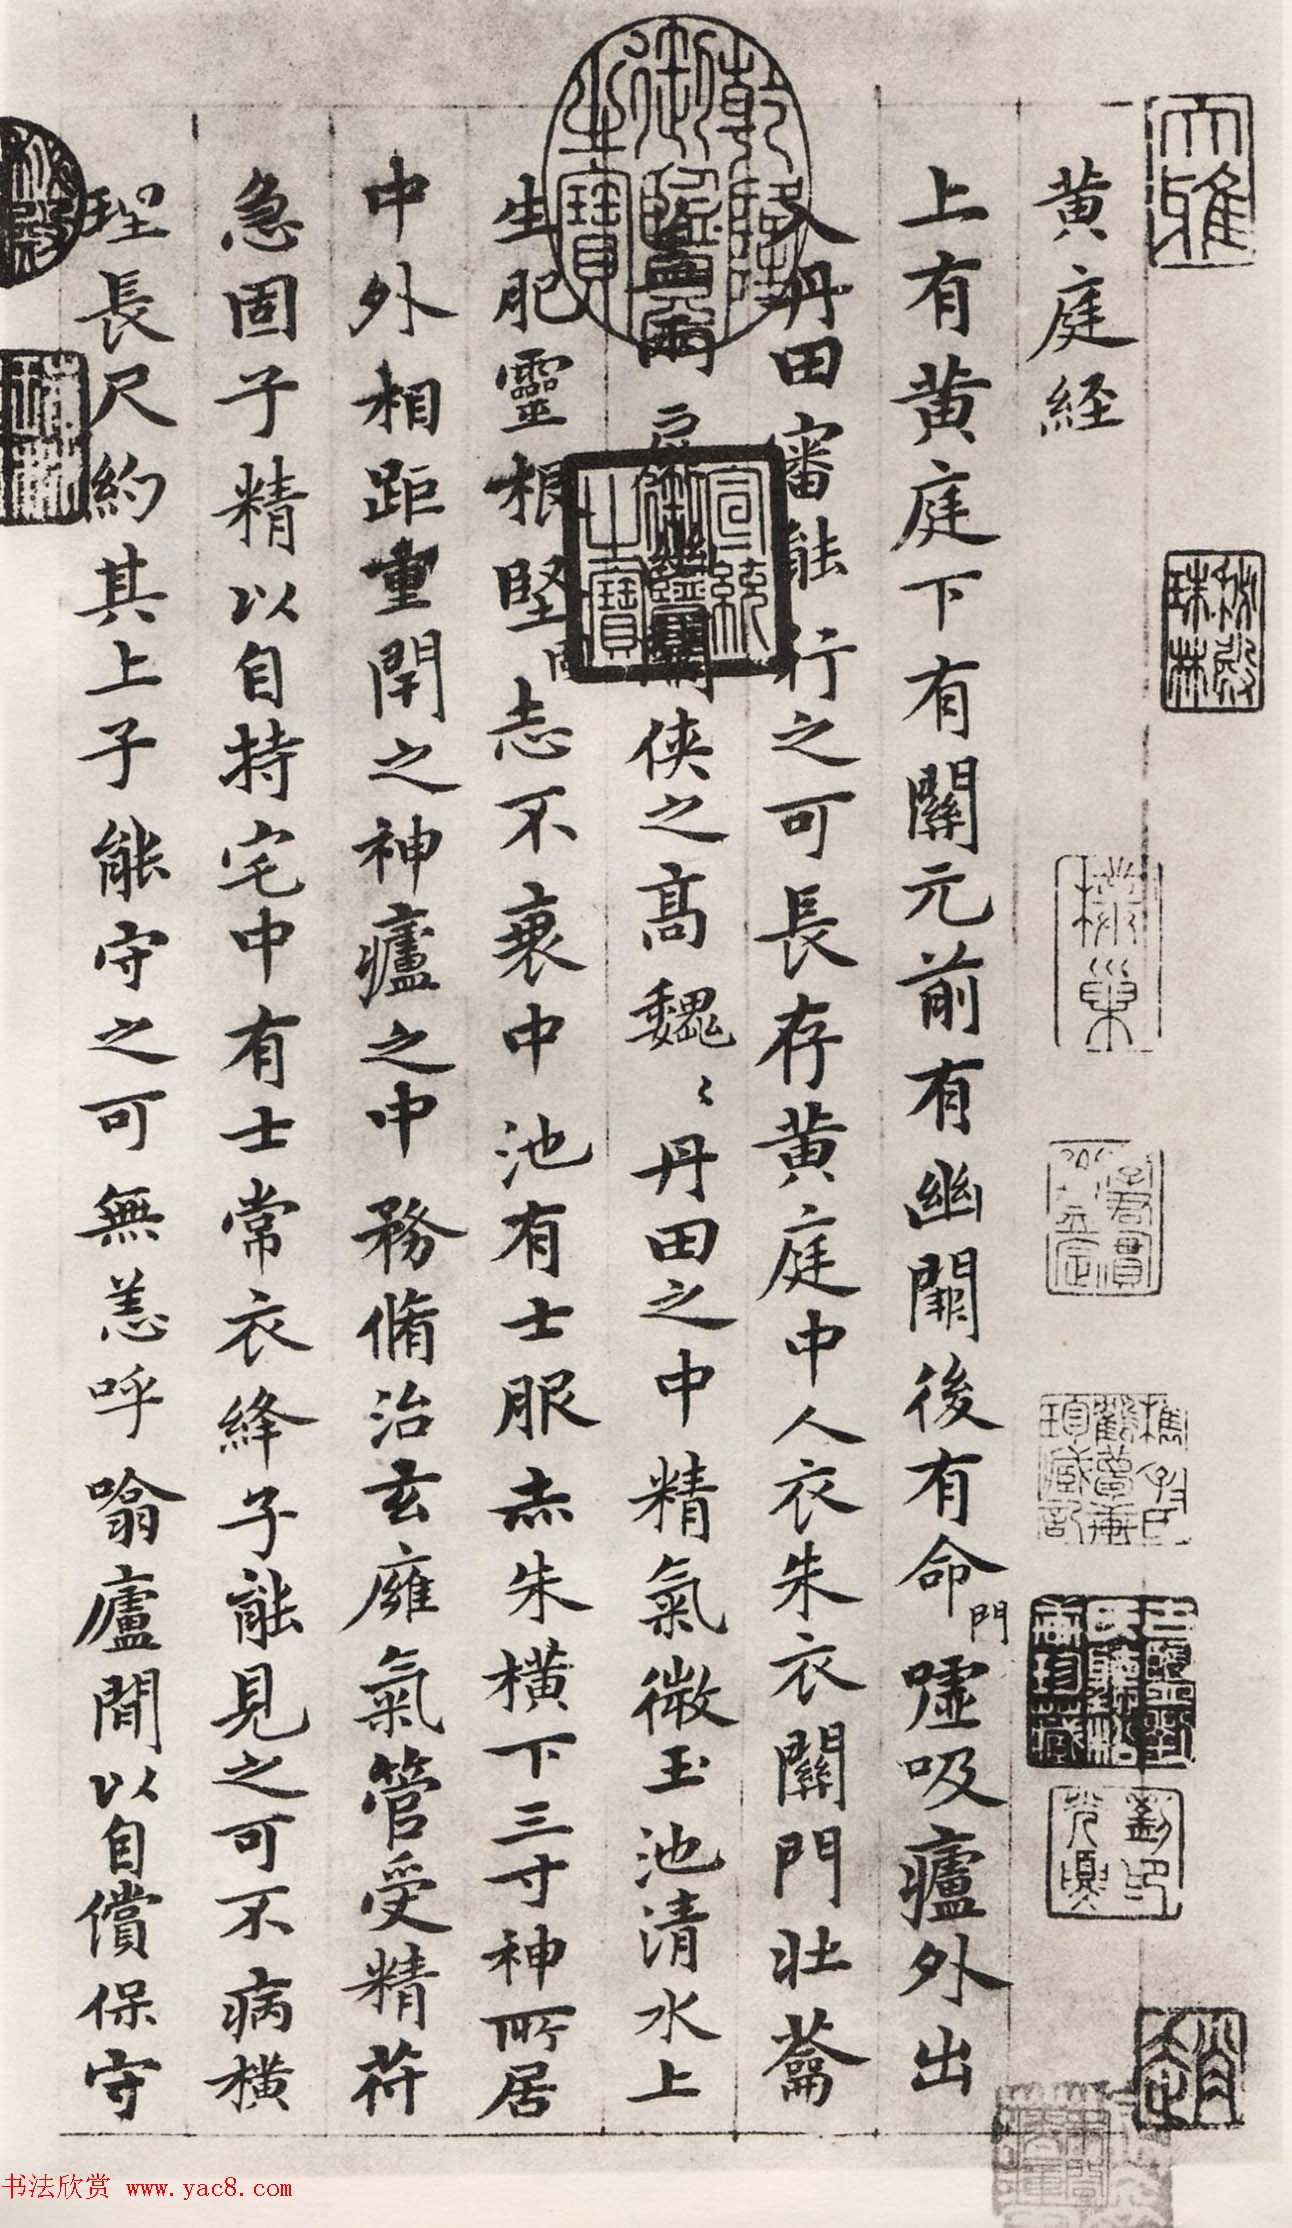 黄庭経
上有黄庭下有關元前有幽關後有命門嘘吸廬外出
入丹田審能行之可長存黄庭中人衣朱衣關門壯蘥
兩侠之高魏〻丹田之中精氣微玉池清水上
生肥靈根堅固志不衰中池有士服赤朱横下三寸神所居
中外相距重閉之神廬之中務脩治玄廱氣管受精苻
急固子精以自持宅中有士常衣絳子能見之可不病横
理長尺約其上子能守之可無恙呼噏廬間以自償保守
大雅
秘殿珠林
乾隆御覽之寶
宣統御覽之寶
趙
书法欣赏 www.yac8.com